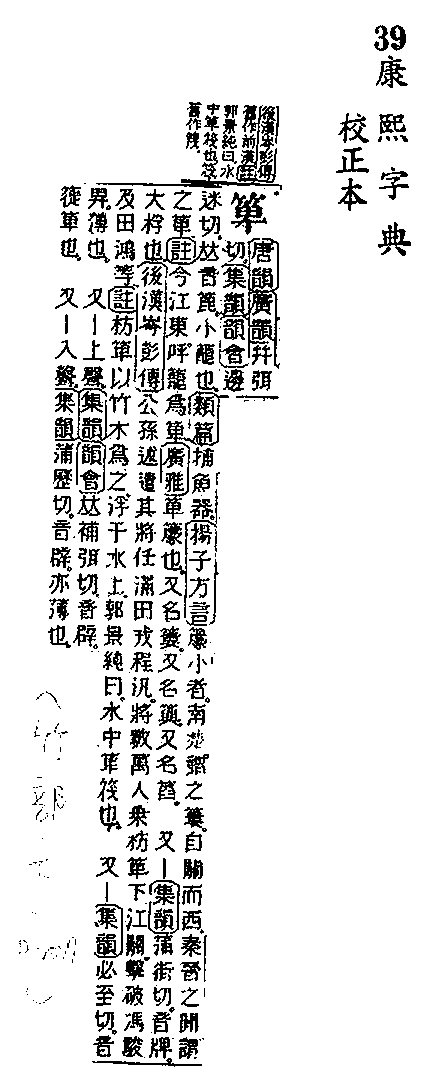 39 康熙字典
校正本
後漢岑彭傳
舊作前漢註
郭景純曰水
中箄筏也筏
舊作
箄
唐韻廣韻幷弭
切集韻韻會邊
迷切𠀤音箆。小籠也。類篇捕魚器。揚子方言小者。南楚謂之簍。自關而西。秦晉之閒謂
之箄註今江東呼籠爲箄廣雅箄也。又名簍。又名籅。又名 又—集韻蒲街切。音牌。
大桴也後漢岑彭傳公孫述遣其將任滿田戎程汎。將數萬人乘枋箄下江關。擊破馮駿
及田鴻等註枋箄以竹木爲之。浮于水上。郭景純曰。水中箄筏也。 又—集韻必至切。音
畀。薄也。 又—上聲集韻韻會𠀤補弭切。音
箄也。 又—入聲集韻蒲歷切。音 亦薄也。
竹部